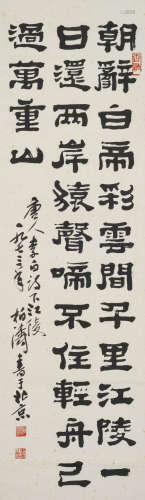 朝辭白帝彩雲間千里江陵一
日還兩岸猿聲啼不住輕舟已
過萬重山
唐人李白詩下江陵
一九七三年柏濤書于北京